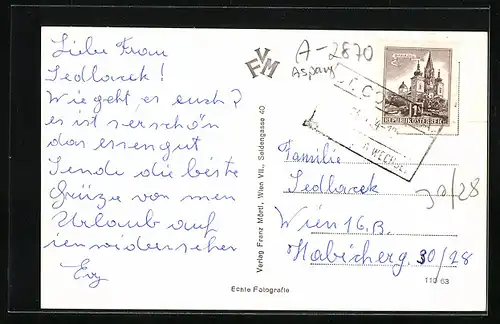 Liebe Frau
Sedlacek!
Wie geht es euch?
es ist ser schön
das essen gut
Sende die beste
Grüze von mein
Urlaub auf
ienwiderseher
Evy
VFM
A-2870
Aspang
REPUBLIK ÖSTERREICH
WECHSEL
Familie
Sedlacek
30/28
Wien 16. B.
Habicherg. 30/28
110 63
Verlag Franz Mörtl, Wien VII., Seidengasse 40
Echte Fotografie